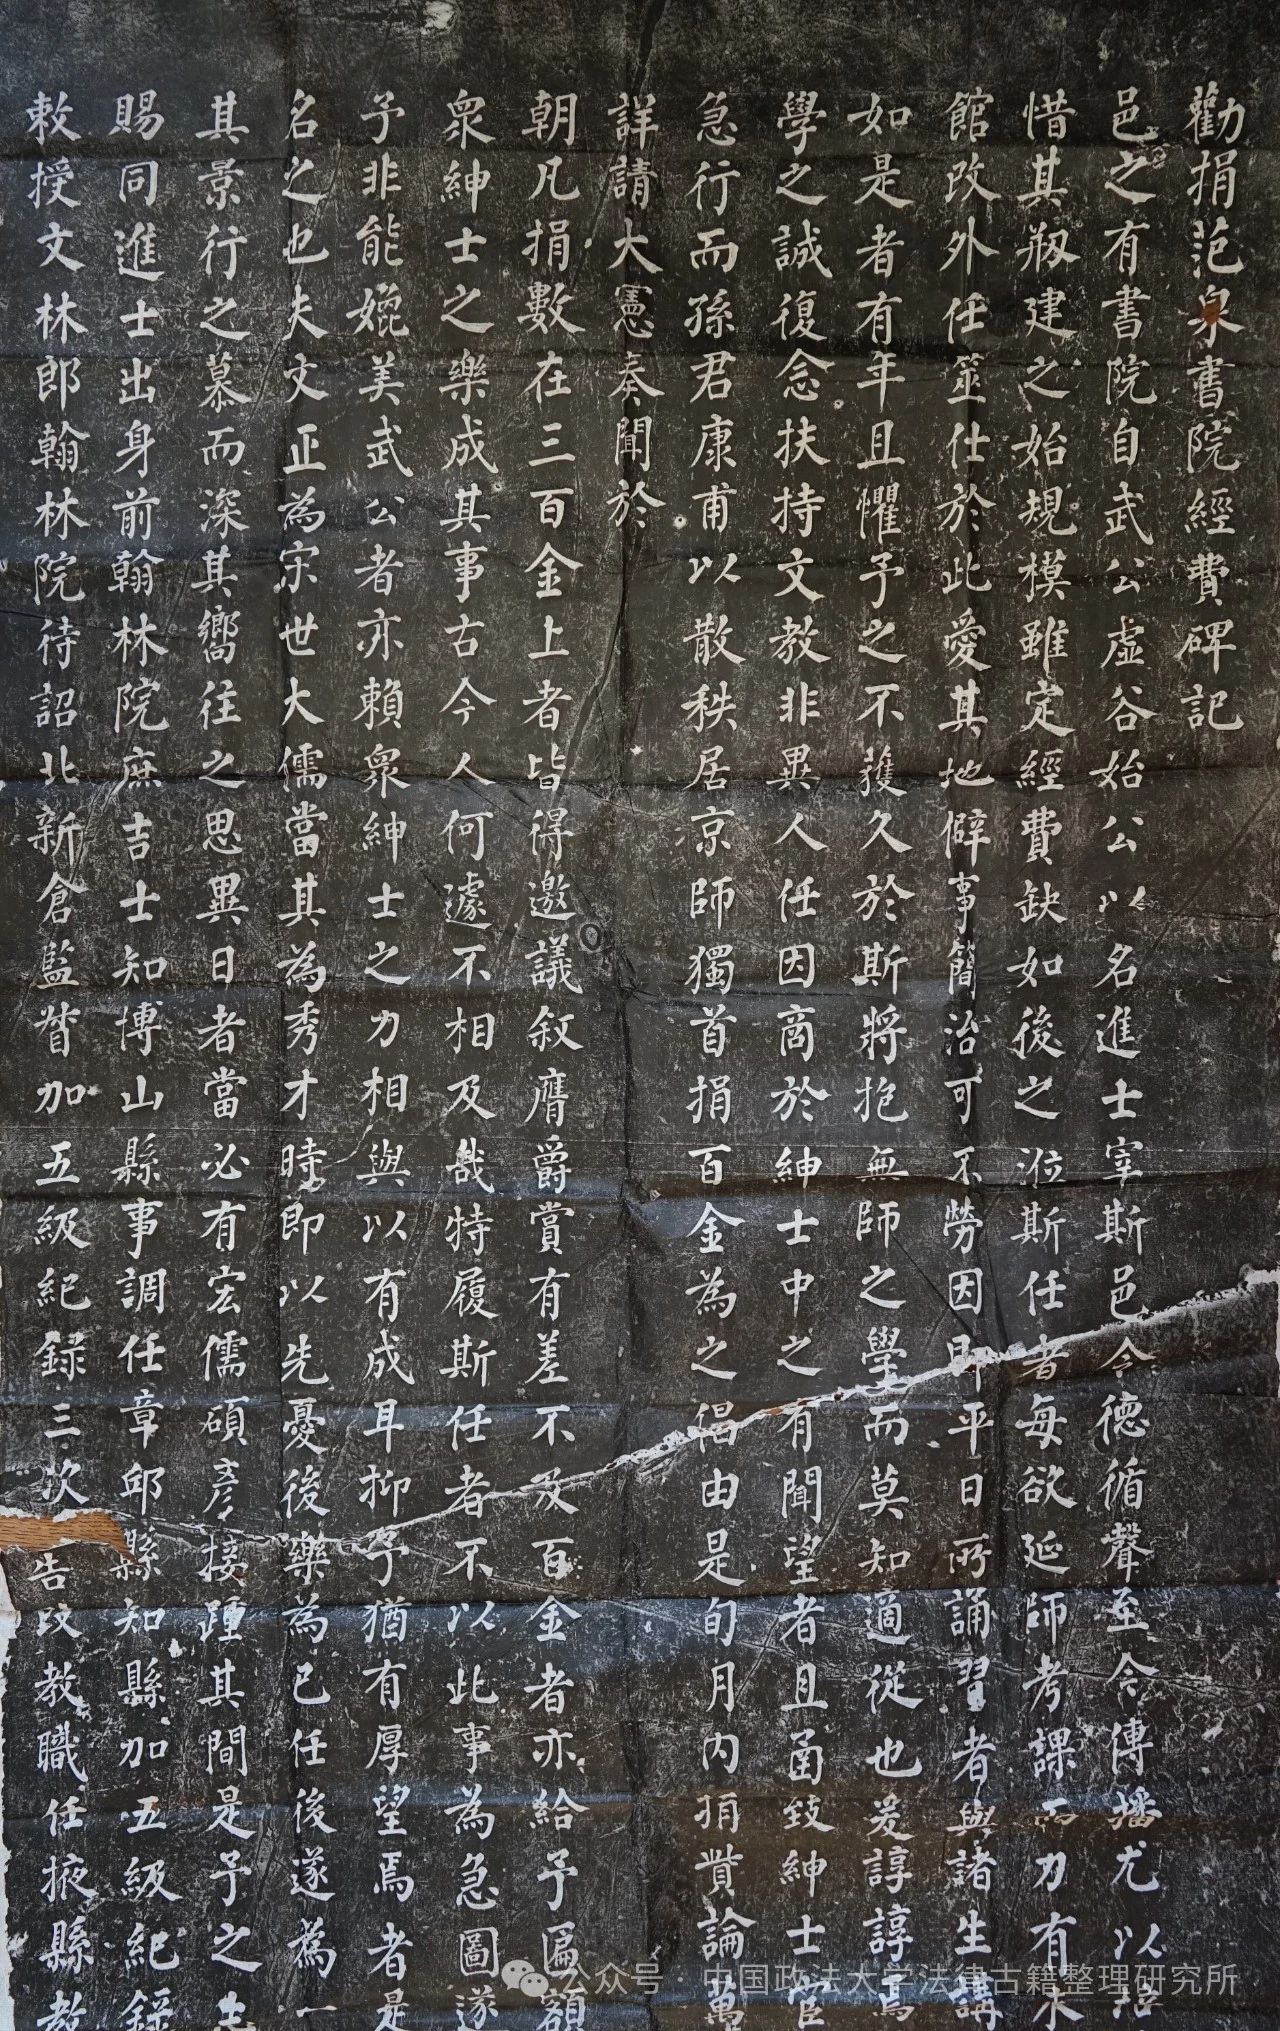 勸捐范泉書院經費碑記
邑之有書院自武公虛谷始公以名進士宰斯邑令德循聲至今傳播尤以
惜其剏建之始規模雖定經費缺如後之涖斯任者每欲延師考課而力有未
館改外任筮仕於此愛其地僻事簡治可不勞因即平日所誦習者與諸生講
如是者有年且懼予之不獲久於斯將抱無師之學而莫知適從也爰諄諄焉
學之誠復念扶持文教非異人任因商於紳士中之有聞望者且函致紳士宦
急行而孫君康甫以散秩居京師獨首捐百金為之倡由是旬月內捐貲論萬
詳請大憲奏聞於
朝凡捐數在三百金上者皆得邀議敘膺爵賞有差不及百金者亦給予匾額
眾紳士之樂成其事古今人何遽不相及哉特履斯任者不以此事為急圖遂
予非能媲美武公者亦賴眾紳士之力相與以有成耳抑予猶有厚望焉者是
名之也夫文正為宋世大儒當其為秀才時即以先憂後樂為己任後遂為一
其景行之慕而深其嚮往之思異日者當必有宏儒碩彥接踵其間是予之
賜同進士出身前翰林院庶吉士知博山縣事調任章邱縣知縣加五級紀錄
敕授文林郎翰林院待詔北新倉監督加五級紀錄三次告改教職任掖縣教
公众号·中国政法大学法律古籍整理研究所